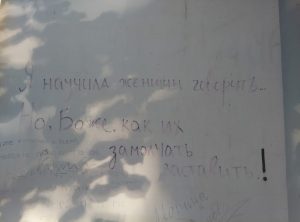 Я научила женщин говорить...
Но, Боже, как их
замолчать
заставить!